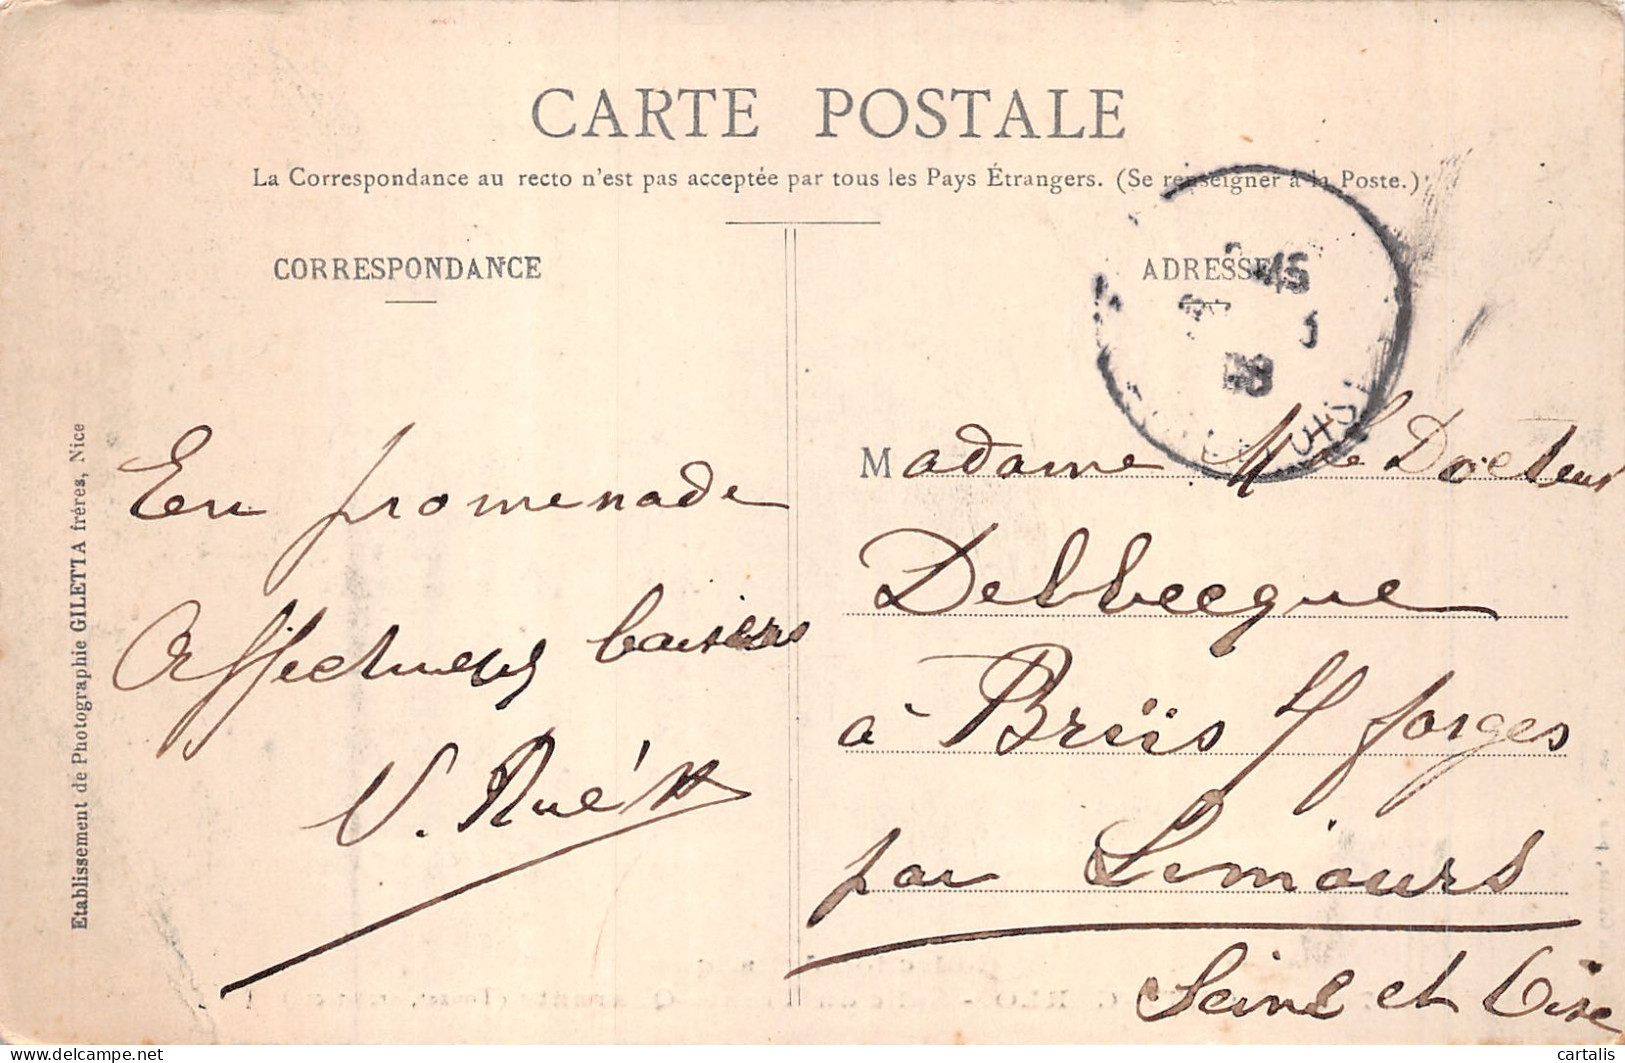 CARTE POSTALE
La Correspondance au recto n'est pas acceptée par tous les Pays Étrangers. (Se renseigner à la Poste.)
CORRESPONDANCE
ADRESSE
En promenade
Affectueux baisers
Madame le Docteur
Delbecque
à Briis s/ forges
par Limours
Seine et Oise
Etablissement de Photographie GILETTA frères, Nice
delcampe.net
cartalis